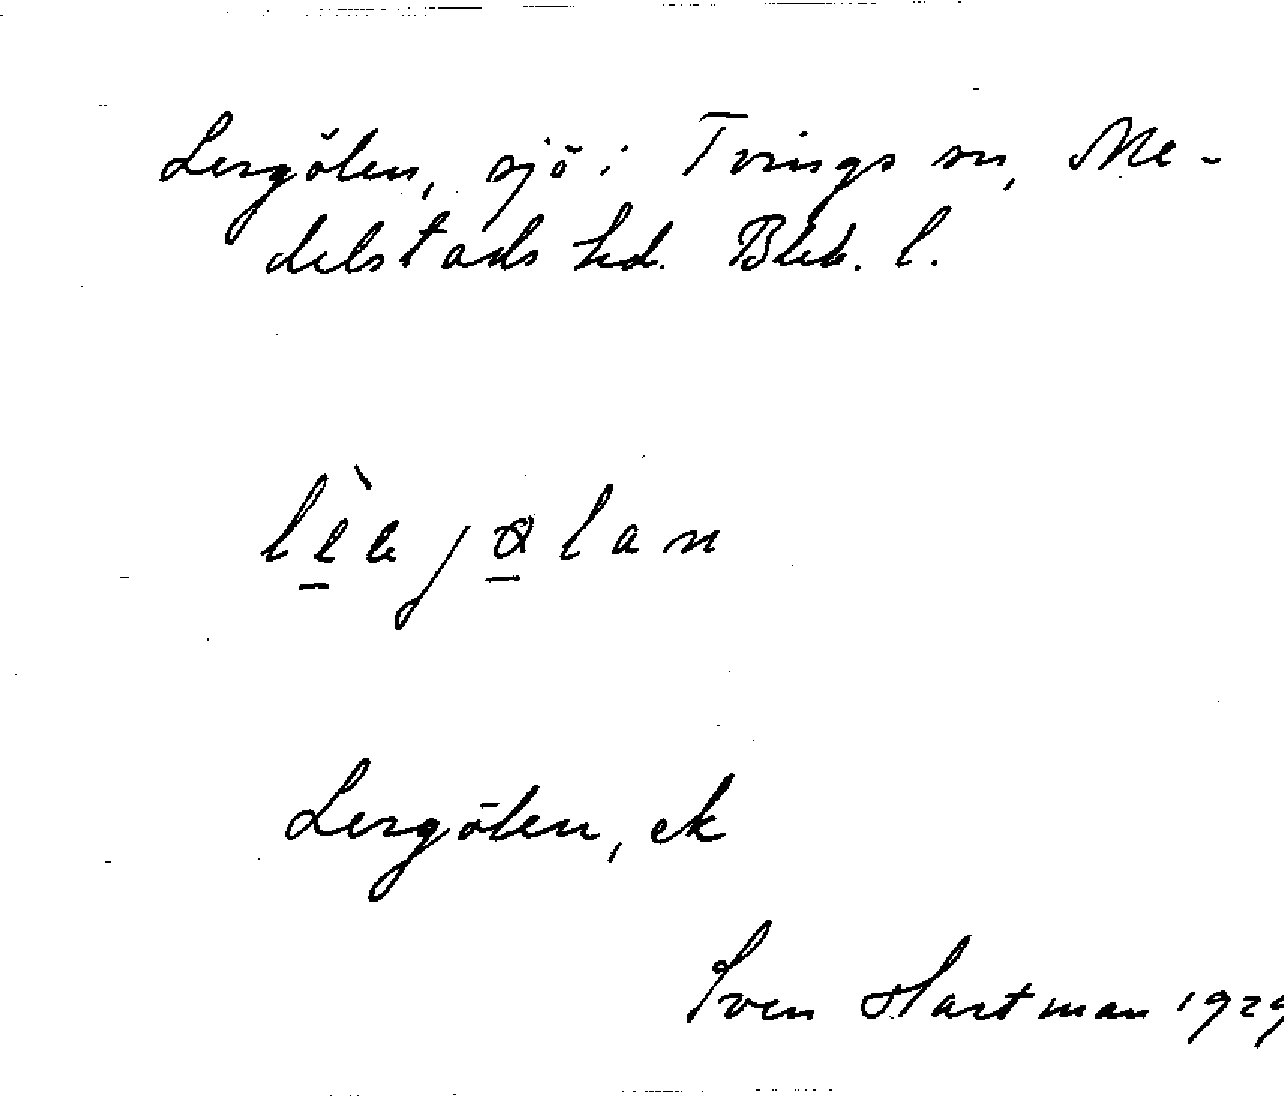 Lergölen, sjö i Tvings sn, Me-
delstads hd. Blek. l.
Lergölen, ek
Sven Hartman 1929